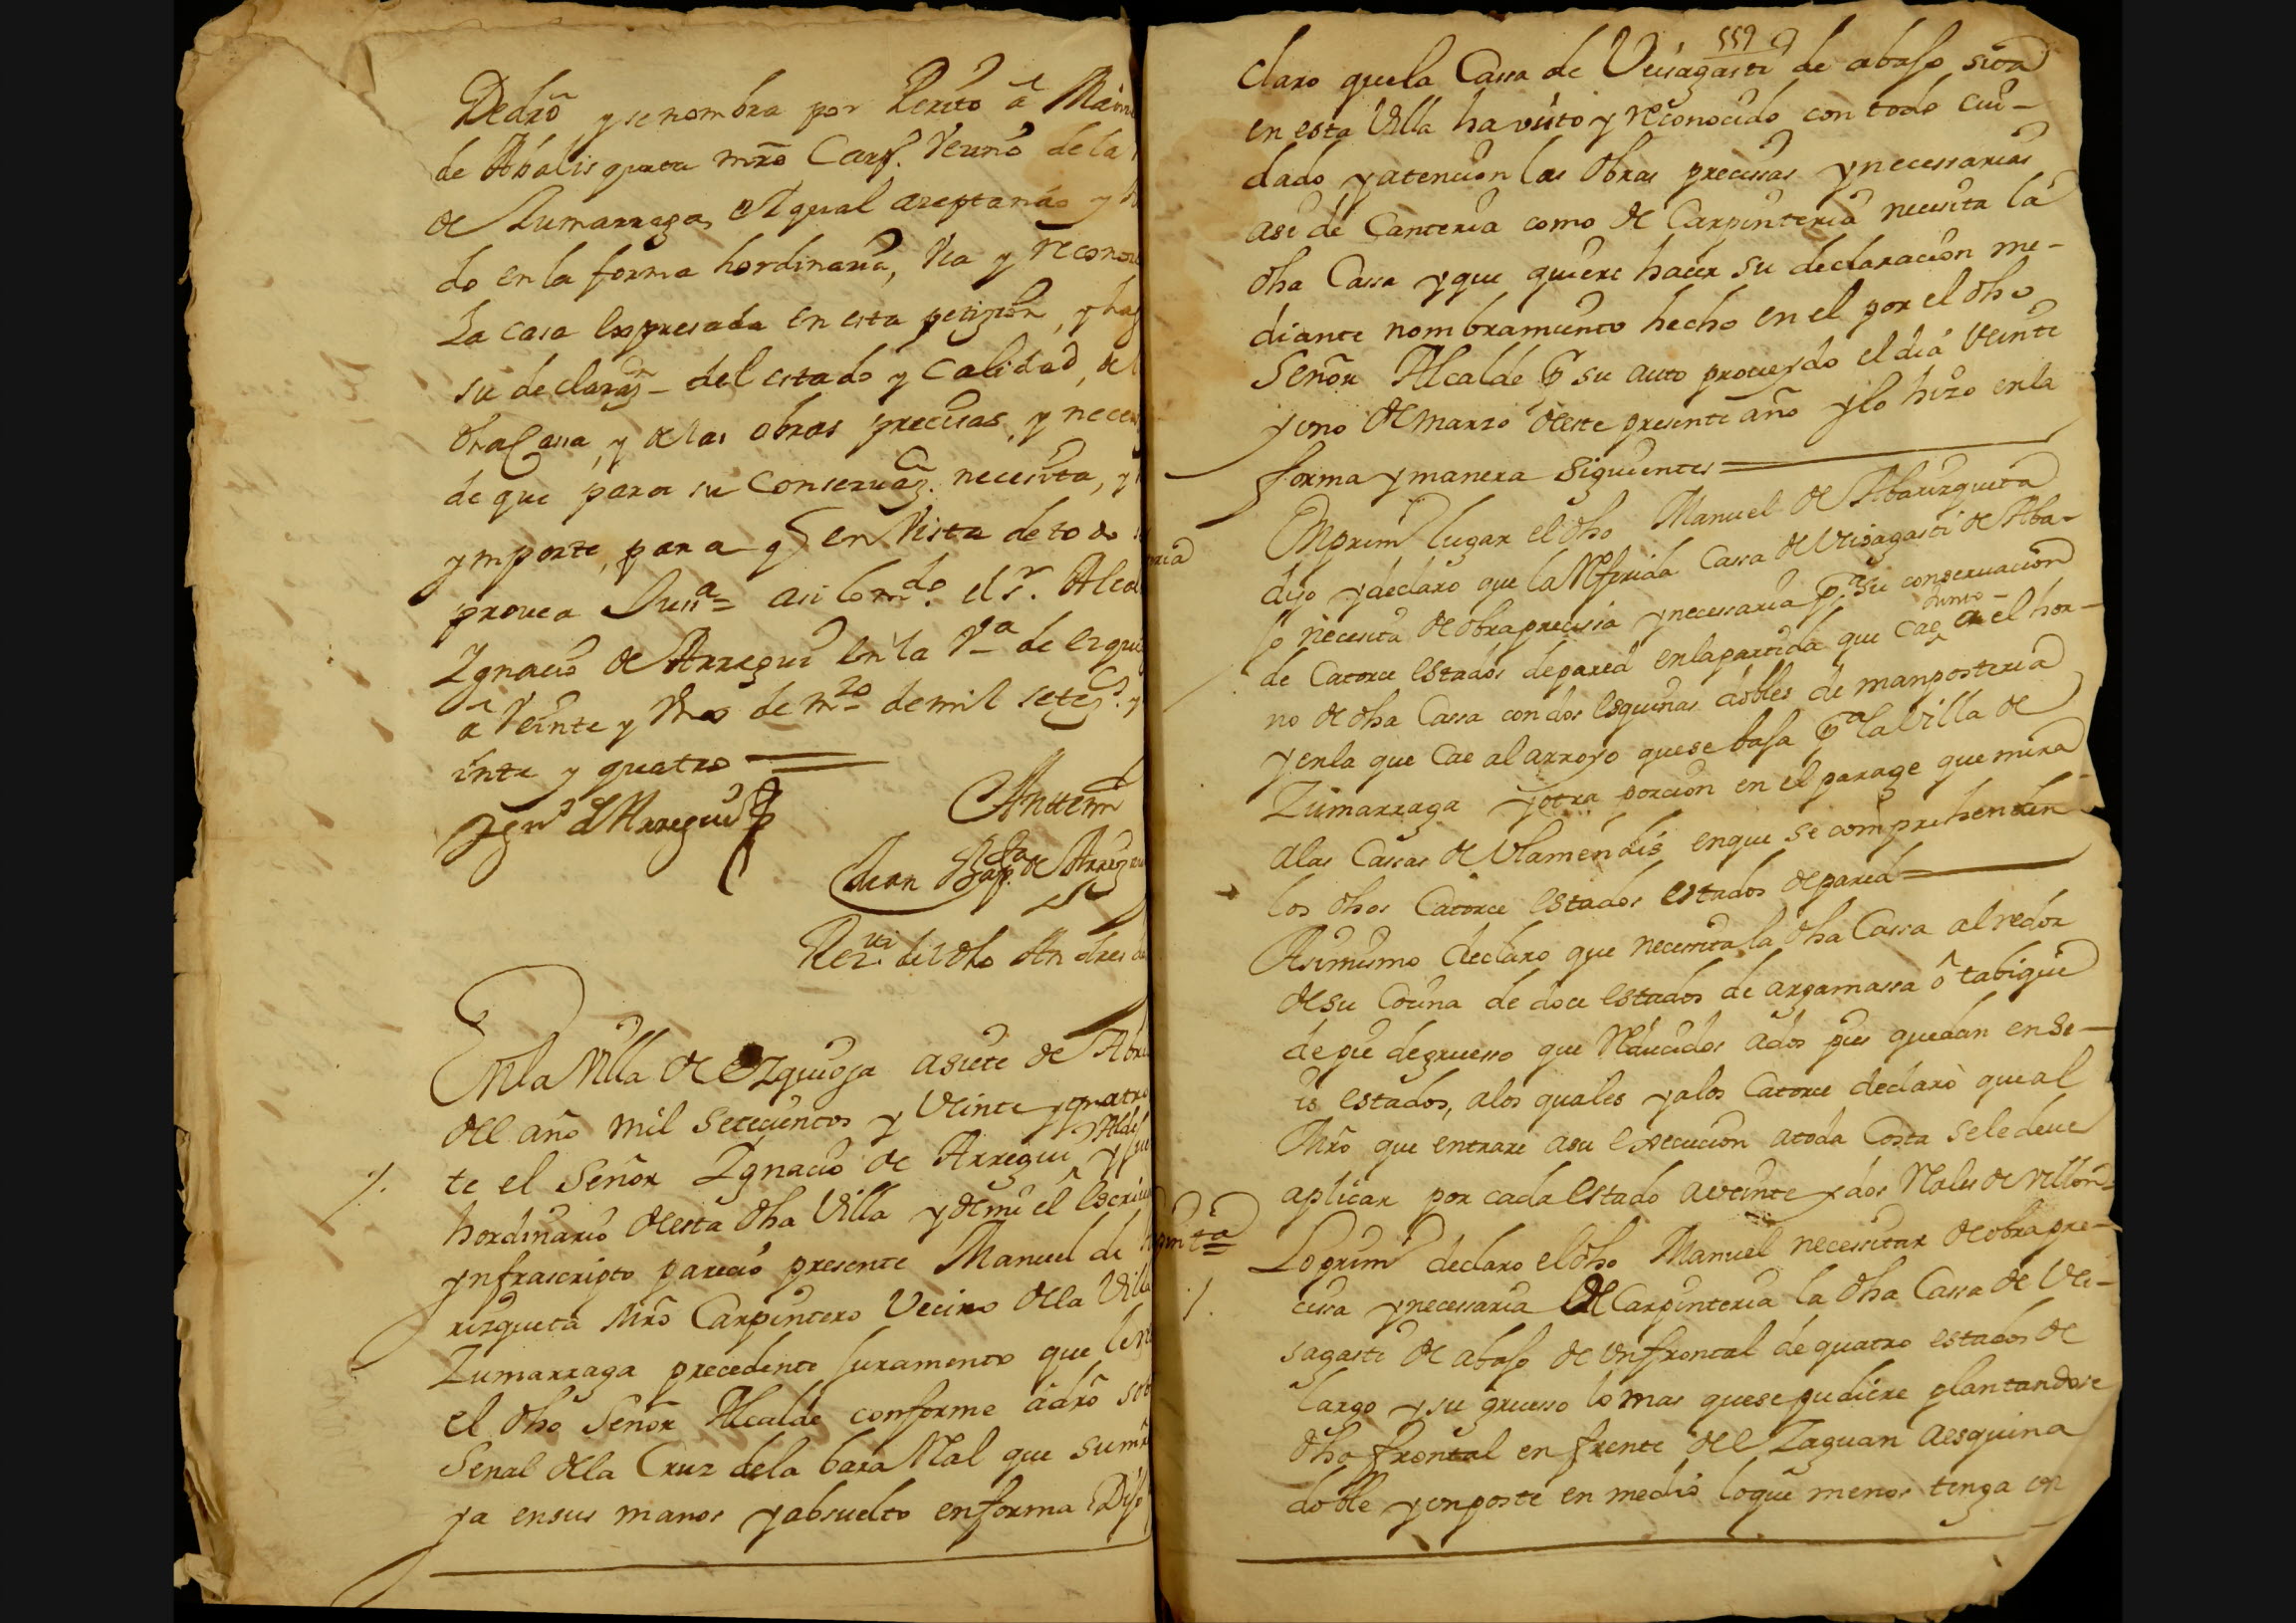 Pedro y se nombra por Perito â Man
de Abalisqueta mrō Carp. Vezino de la
de Zumarraga, el qual azeptando y
do en la forma hordinaria, Vea y recono
La casa Expresada en esta petizion, y hag
su declaraz.n del estado y Calidad, de
dha Cassa, y de las obras precisas, y neces
de que para su Conseruaz. necesita, y
ymporte, para q en Vista de todo
prouea Juss.a = asi lo m.do el S.r Alcal
Ygnacio de Arregui en la V.a de Ezqui
â Veinte y Vno de m.zo de mil setez.s y
inte y quatro
Ign.o de Arregui
Antemi
Juan Bap.ta de Arreg
Rez.ui del dho Andres de
En la Villa de Ezquioga a siete de Abri
del año mil setecientos y Veinte y quatro
te el Señor Ygnacio de Arregui Alde y Jue
hordinario de esta dha Villa y de mi el Escriu
ynfrascripto parecio presente Manuel de
rizqueta Mrō Carpintero Vecino de la Villa
Zumarraga precedente Juramento que
el dho Señor Alcalde conforme a drō sob
Senal de la Cruz de la bara Real que sum
ya en sus manos y absuelto en forma Dijo
559
claro que la Cassa de Veisagasti de abajo sita
en esta Villa ha visto y reconocido con todo cui-
dado y atencion las Obras precissas y necessarias
asi de Canteria como de Carpinteria necesita la
dha Cassa y que quiere hacer su declaracion me-
diante nombramiento hecho en el por el dho
Señor Alcalde p su auto proueydo el dia Veinte
y uno de Marzo de este presente año y lo hizo en la
forma y manera siguientes
Emprim lugar el dho Manuel de Abarizqueta
dijo y declaro que la Referida Cassa de Veisagasti de Aba-
jo necesita de obra precisia y necessaria p.a su conseruacion
de Catorce estados de pared en la partida que Cae junto a el hor-
no de dha Cassa con dos esquinas dobles de manposteria
y en la que Cae al arroyo que se baja p.a la Villa de
Zumarraga y otra porcion en el parage que mira
a las Cassas de Vlamendis en que se comprehenden
los dhos Catorce estados estados de pared
Asimismo declaro que necessita la dha Cassa al redor
de su Cocina de doce estados de argamassa ô tabique
de pie de gruesso que Reducidos a dos pies quedan en se-
is estados, a los quales y a los Catorce declarò que al
Mrō que entrare a su Execucion a toda Costa se le deue
aplicar por cada estado a veinte y dos Reales de Vellon=
Lo prim declaro el dho Manuel necessitar de obra pre-
cissa y necessaria de Carpinteria la dha Cassa de Vei-
sagasti de abajo de Vn frontal de quatro estados de
largo y su gruesso lo mas que se pudiere plantandose
dho frontal en frente del Zaguan a esquina
doble y un poste en medio lo que menos tenga con